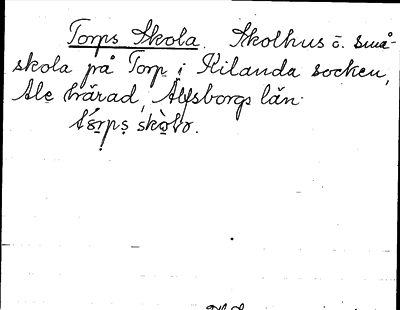 Torps Skola. Skolhus o. små-
skola på Torp i Kilanda socken,
Ale härad, Älfsborgs län.